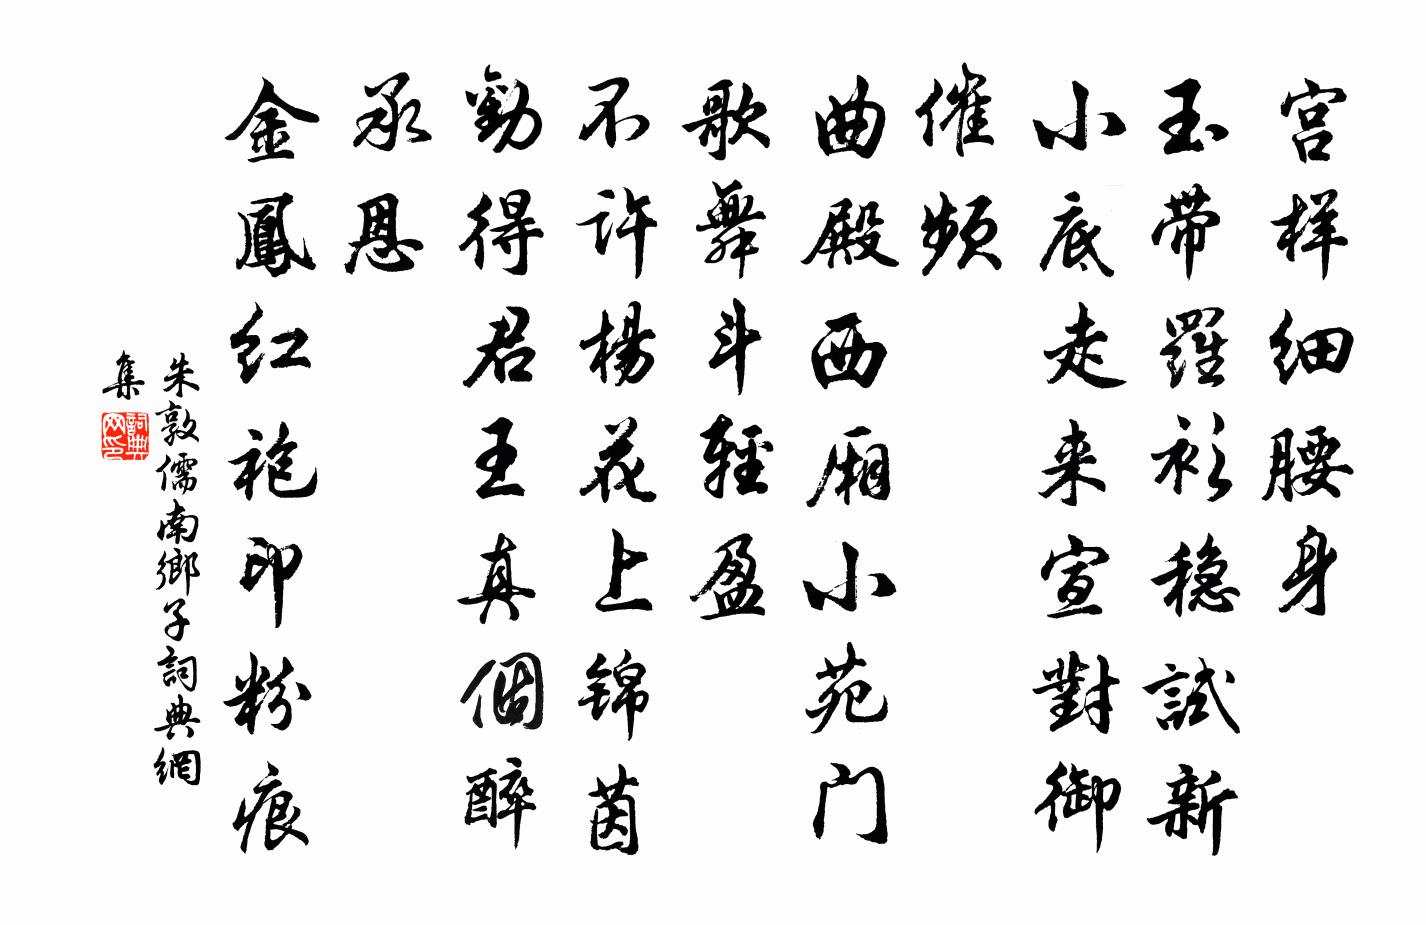 宫样细腰身
玉带羅衫稳試新
小底走来宣對御
催頻
曲殿西厢小苑门
歌舞斗輕盈
不许楊花上锦茵
勸得君王真個醉
承恩
金鳳红袍印粉痕
朱敦儒南鄉子詞典網
集
詞典
网印